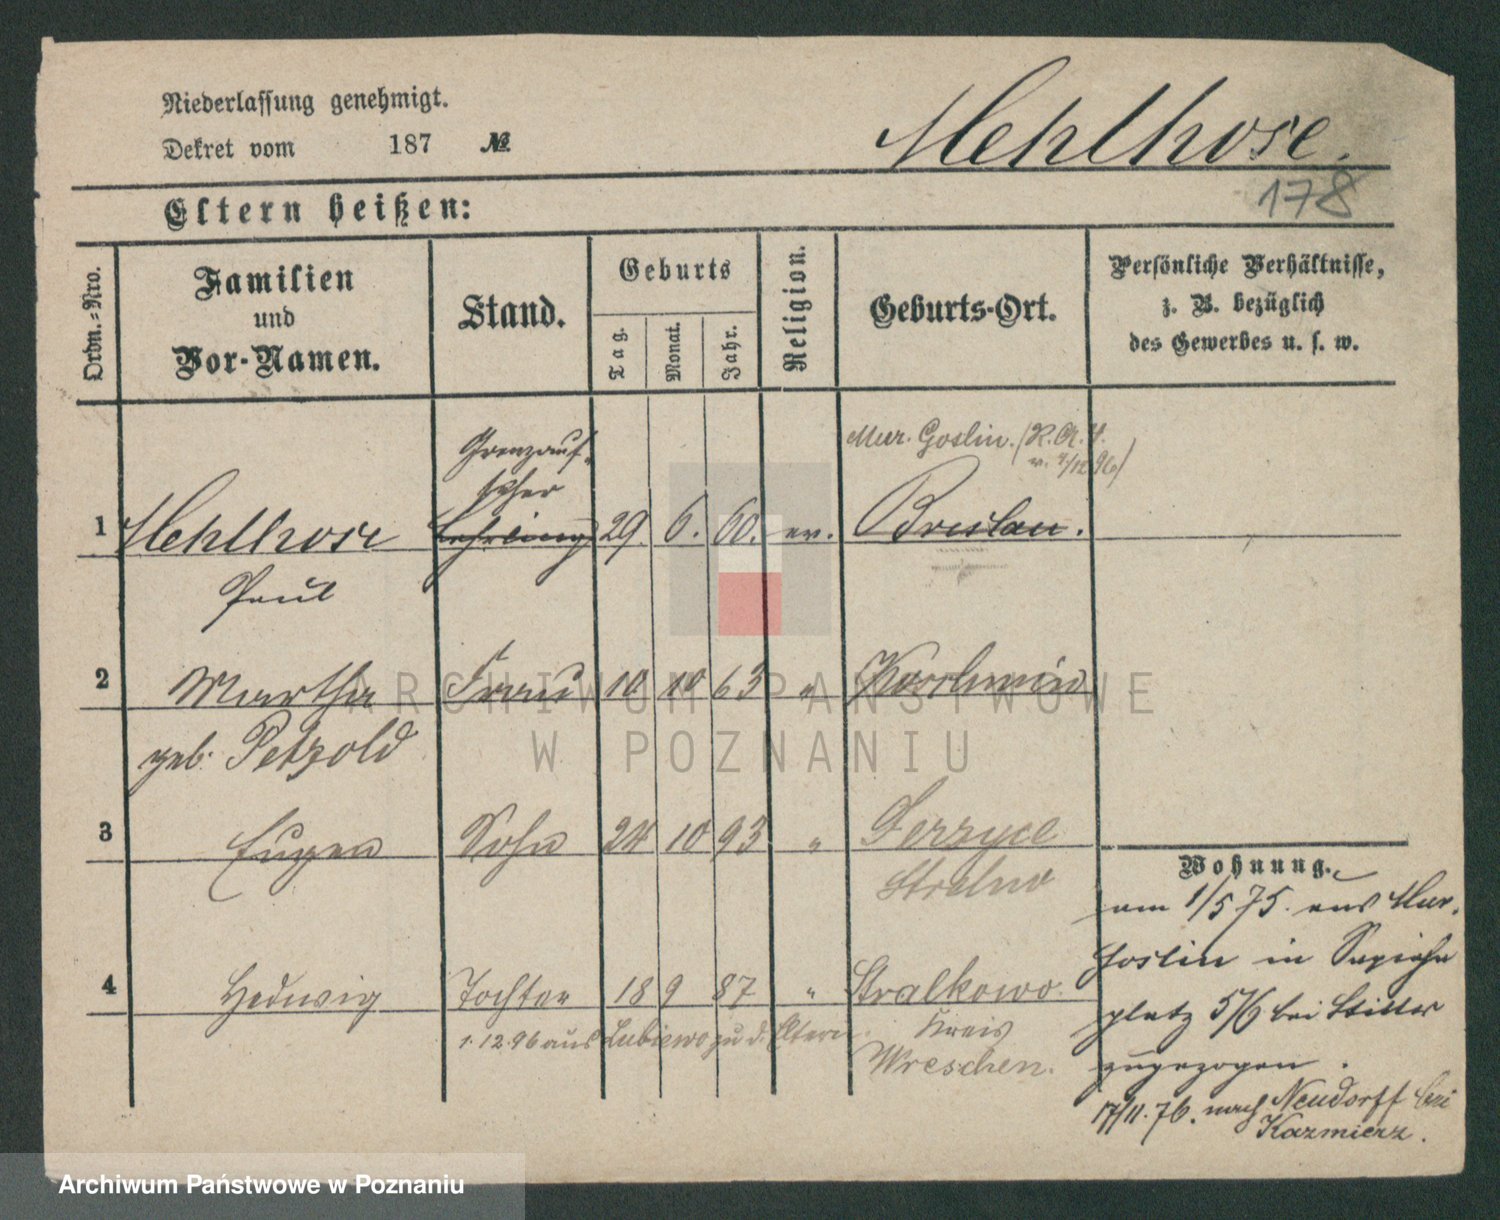 Niederlassung genehmigt.
Dekret vom 187 №
Mehlhose.
178
Eltern heißen:
Ordn.-Nro.
Familien
und
Vor-Namen.
Stand.
Geburts
Tag.
Monat.
Jahr.
Religion.
Geburts-Ort.
Persönliche Verhältnisse,
z. B. bezüglich
des Gewerbes u. s. w.
Grenzauf-
seher
Mur. Goslin. (R. A. 4.
v. 4/12 96)
1 Mehlhose Lehrling 29. 6. 60. ev. Breslau.
Paul
2 Martha Frau 10 10 63 "
geb. Petzold
3 Eugen Sohn 24 10 93 " Jerzyce
Stralno
4 Hedwig Tochter 18 9 87 " Stralkowo.
1. 12. 96 aus Lubiewo zu d. Eltern.
Kreis
Wreschen.
Wohnung.
am 1/5 75. aus Mur.
Goslin in Sapieha
platz 5/6 bei
zugezogen.
17/11. 76. nach Neudorff bei
Kazmierz.
ARCHIWUM PAŃSTWOWE
W POZNANIU
Archiwum Państwowe w Poznaniu